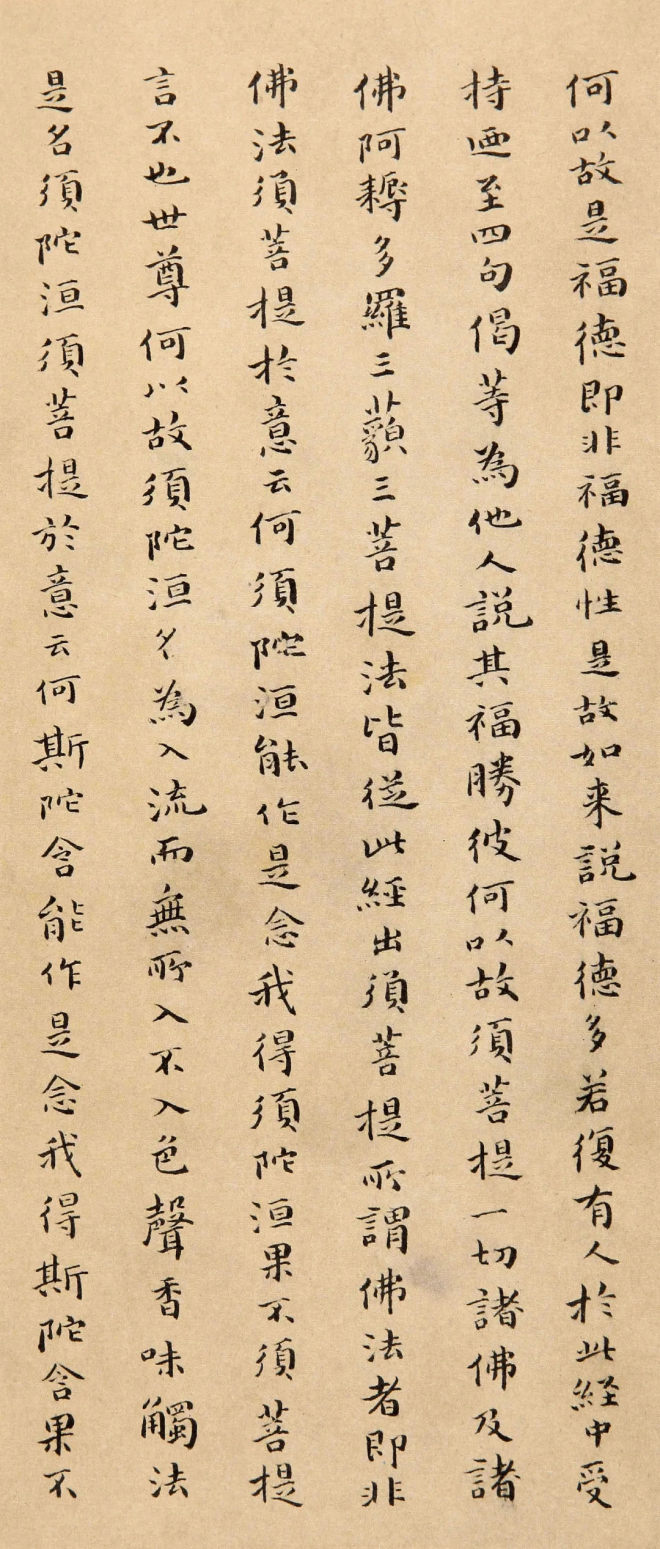 何以故是福德即非福德性是故如来説福德多若復有人於此経中受
持迺至四句偈等為他人説其福勝彼何以故須菩提一切諸佛及諸
佛阿耨多羅三藐三菩提法皆從此經出須菩提所謂佛法者即非
佛法須菩提於意云何須陀洹能作是念我得須陀洹果不須菩提
言不也世尊何以故須陀洹名為入流而無所入不入色聲香味觸法
是名須陀洹須菩提於意云何斯陀含能作是念我得斯陀含果不